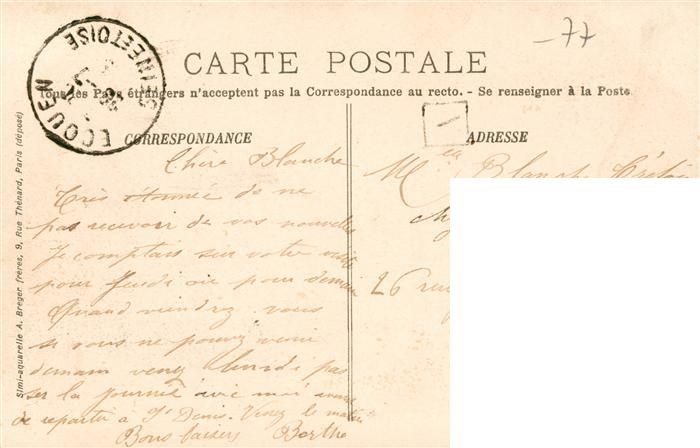 -77
CARTE POSTALE
Tous les Pays étrangers n'acceptent pas la Correspondance au recto. - Se renseigner à la Poste
ECOUEN
SEINE ET OISE
CORRESPONDANCE
ADRESSE
Chère Blanche
Très étonnée de ne
pas recevoir de vos nouvelles
Je comptais sur votre visite
pour Jeudi ou pour demain
Quand viendrez vous
si vous ne pouvez venir
demain venez lundi pas
ser la journée avec moi avant
de repartir a St Denis. Venez le matin
Bons baisers Berthe
Melle Blanche
26 rue
Simi-aquarelle A. Breger frères, 9, Rue Thénard, Paris (déposé)